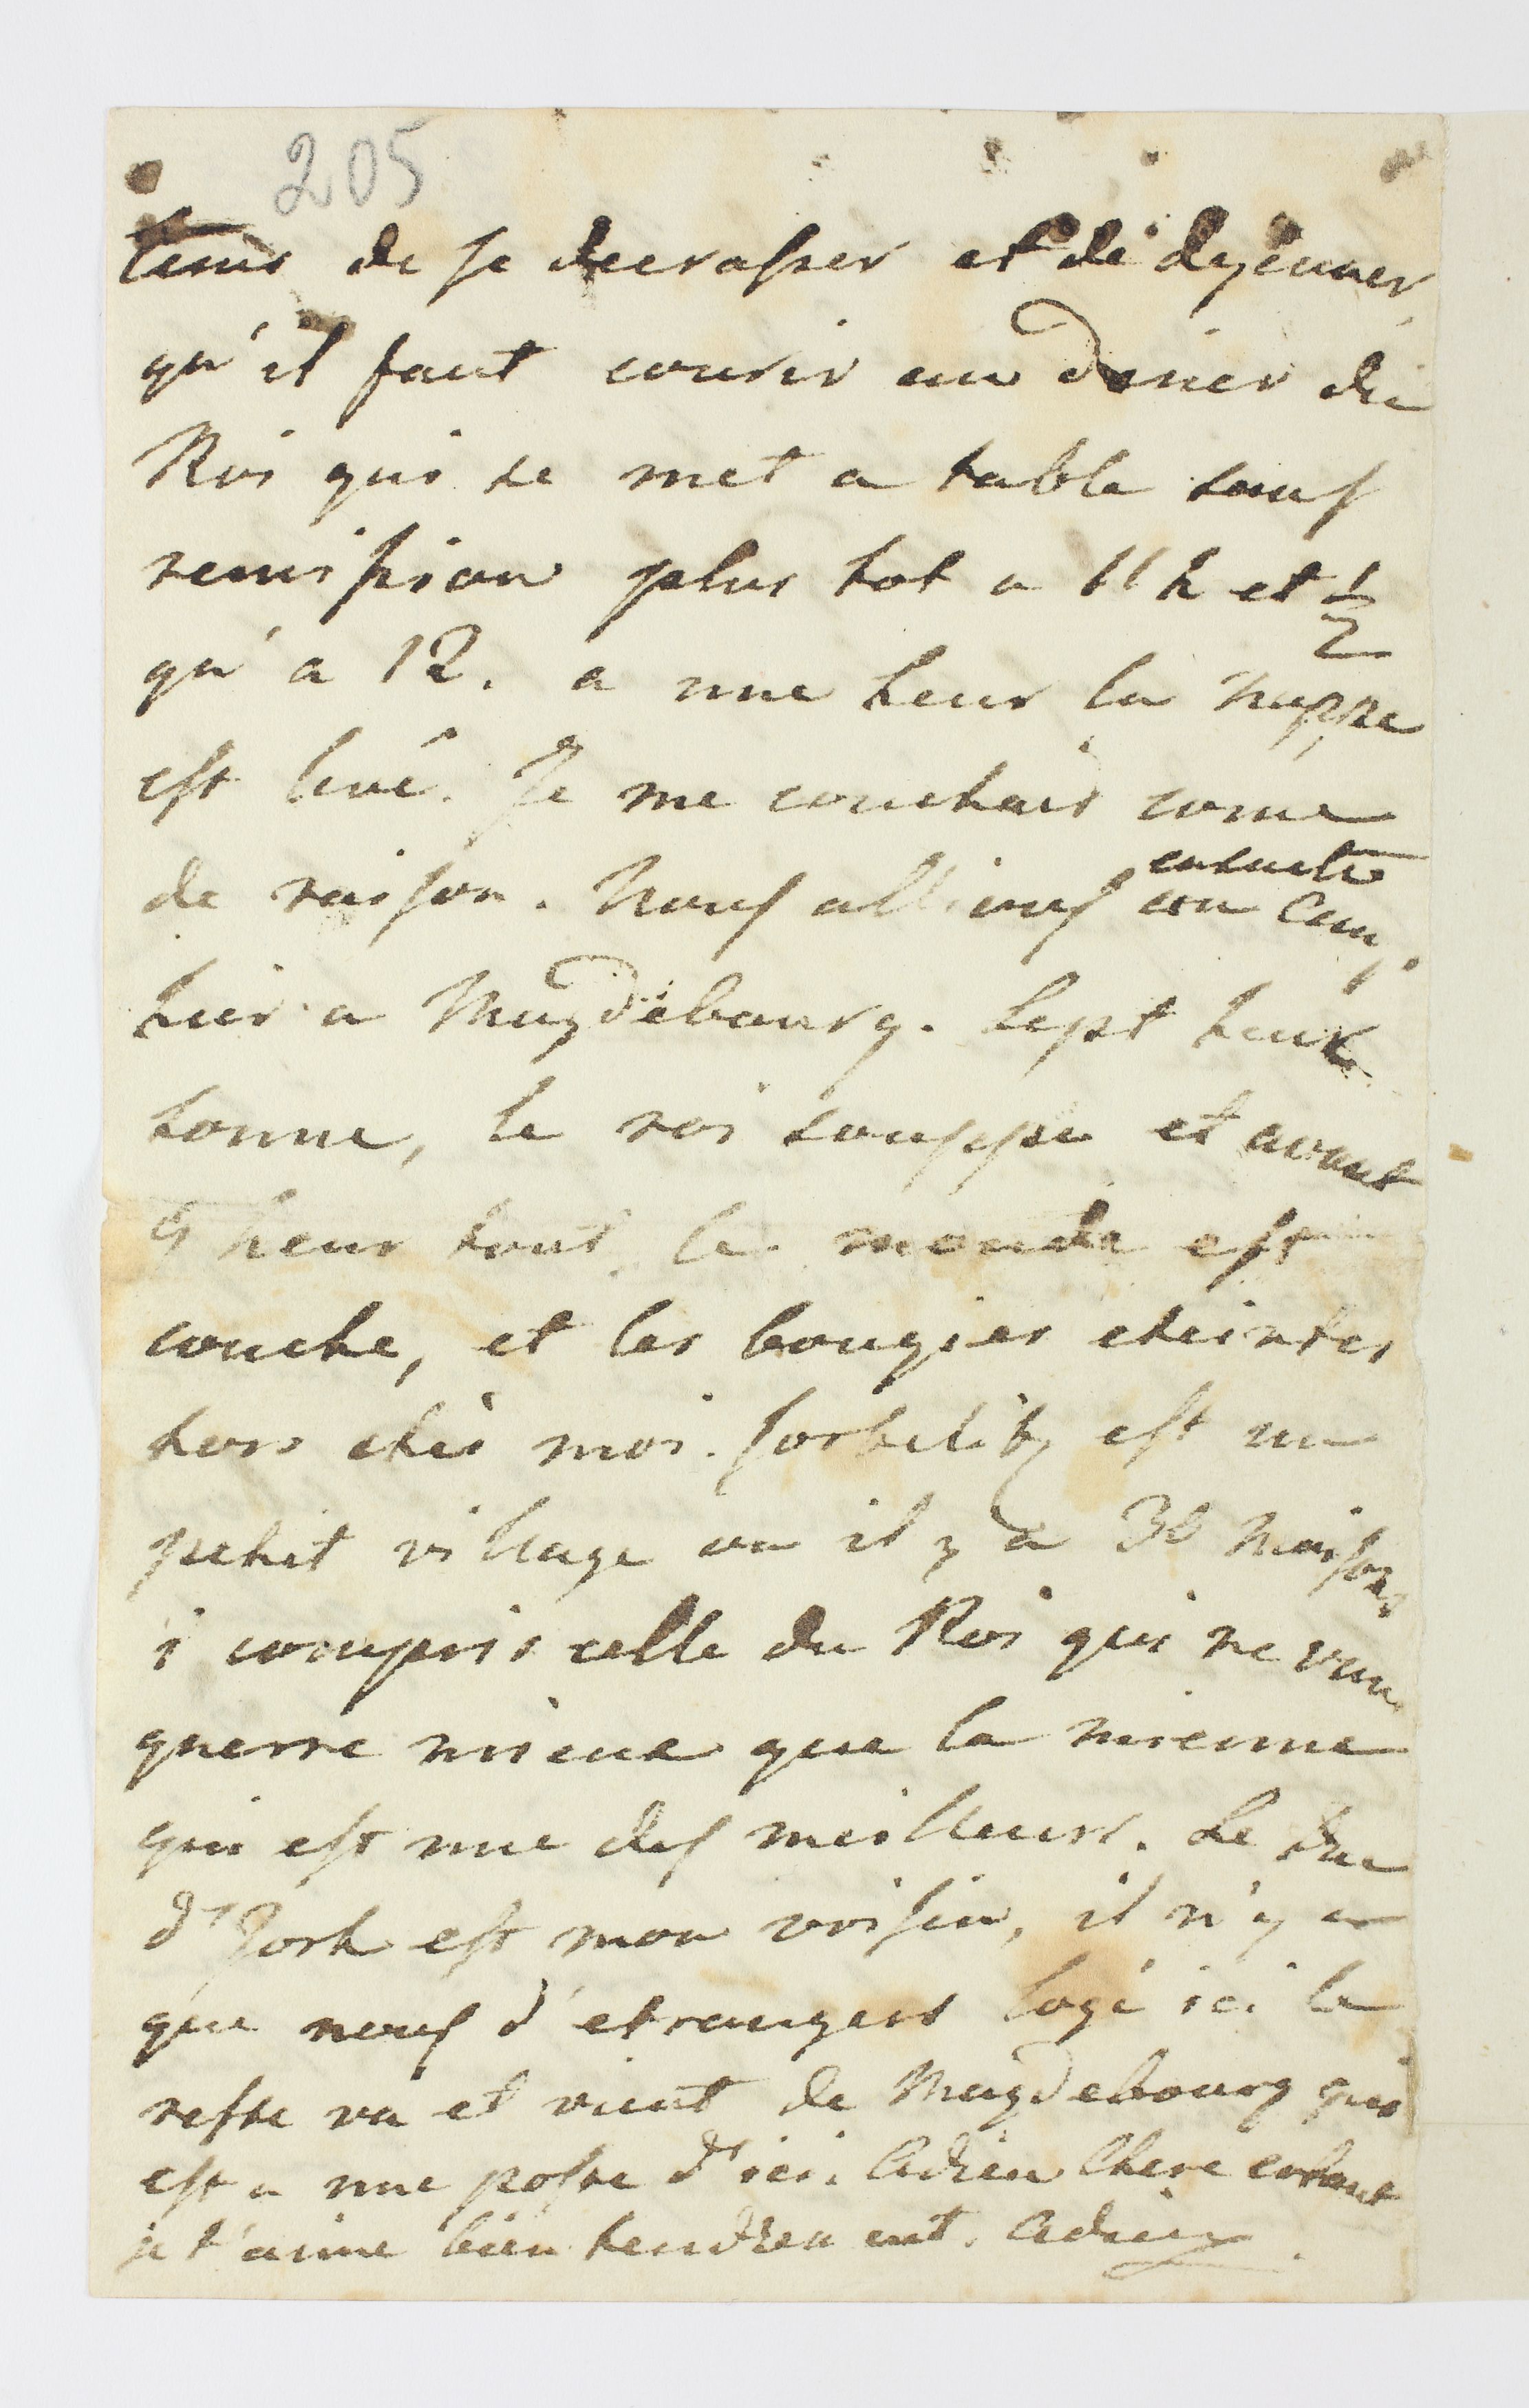 205
tems de se decrasser et de dejeuner
qu'il faut courir au diner du
Roi qui se met a table sans
remission plus tot a 11 h et 1/2
qu'a 12. a une heur la nappe
est levé. Je me couchais come
de raison. Nous allions ensuite au camp
hier a Magdebourg. Sept heur
sonne, le roi souppe et avant
9 heur tout le monde est
couche, et les bougies eteintes
hors chés moi. Corbelitz est un
petit village ou il y a 30 maisons
i compris celle du Roi qui ne vau
guerre mieux que la mienne
qui est une des meilleurs. Le Duc
d'York est mon voisin, il n'y a
que nous d'etrangers logé ici le
reste va et vient de Magdebourg qui
est a une poste d'ici. Adieu Chere enfant
je t'aime bien tendrement. Adieu.